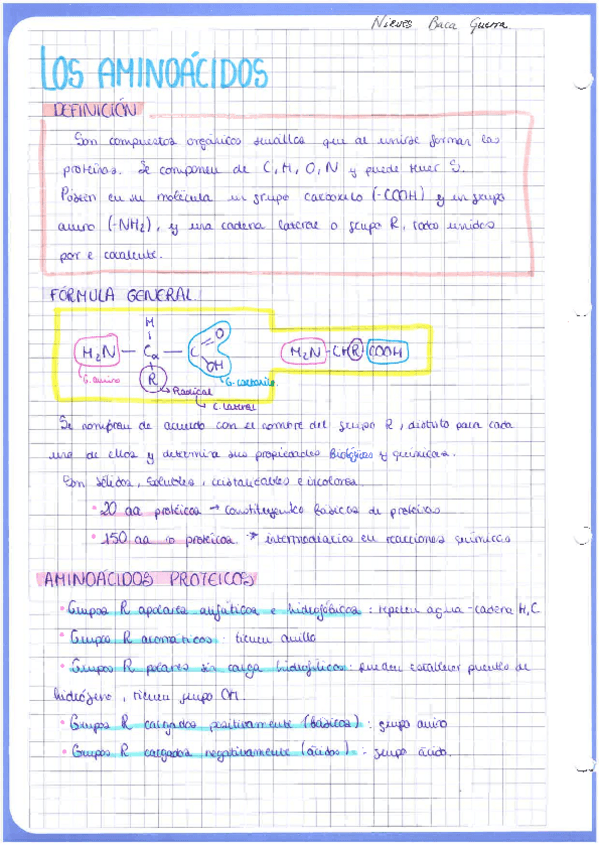 Nieves Baca Guerra
LOS AMINOÁCIDOS
DEFINICIÓN
Son compuestos orgánicos sencillos que al unirse forman las
proteínas. Se componen de C, H, O, N y puede tener S.
Poseen en su molécula un grupo carboxilo (-COOH) y un grupo
amino (-NH2), y una cadena lateral o grupo R, todo unidos
por e covalente.
FÓRMULA GENERAL
H
H2N — Cα — C O OH
R
G. amino
Radical
C. lateral
G. carboxilo
H2N - CHR COOH
Se nombran de acuerdo con el nombre del grupo R, distinto para cada
uno de ellos y determina sus propiedades biológicas y químicas.
Son sólidos, solubles, cristalizables e incoloros
• 20 aa protéicos → constituyentes básicos de proteínas
• 150 aa no protéicos → intermediarios en reacciones químicas
AMINOÁCIDOS PROTEICOS
• Grupos R apolares alifáticos e hidrofóbicos: repelen agua - cadena H, C
• Grupos R aromáticos: tienen anillo
• Grupos R polares sin carga hidrofílicos: pueden establecer puentes de
hidrógeno, tienen grupo OH.
• Grupos R cargados positivamente (básicos): grupo amino
• Grupos R cargados negativamente (ácidos): grupo ácido.